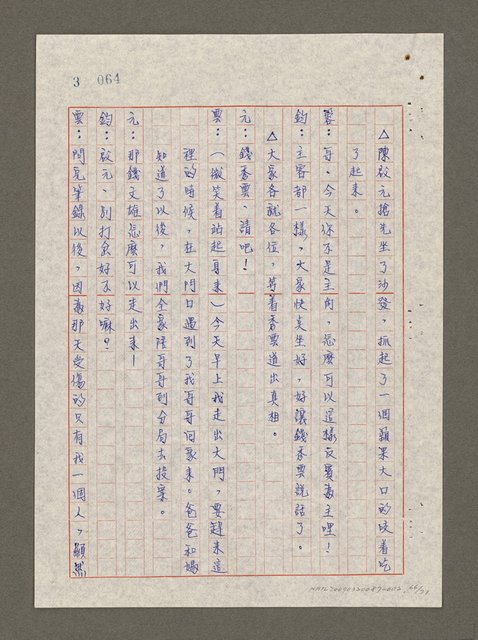 3 064
△陳啟元搶先坐了沙發，抓起了一個蘋果大口的咬着吃
了起來。
蓉：哥，今天你不是主角，怎麼可以這樣反賓為主哩！
鈞：主客都一樣，大家快点坐好，好讓錢秀雲說話了。
△大家各就各位，等着秀雲道出真相。
元：錢秀雲，請吧！
雲：（微笑着站起身來）今天早上我走出大門，要趕來這
裡的時候，在大門口遇到了我哥哥回家來。爸爸和媽
知道了以後，我們全家陪哥哥到分局去投案。
元：那錢文雄怎麼可以走出來！
鈞：啟元，別打岔好不好嘛？
雲：問完筆錄以後，因為那天受傷的只有我一個人，顯然